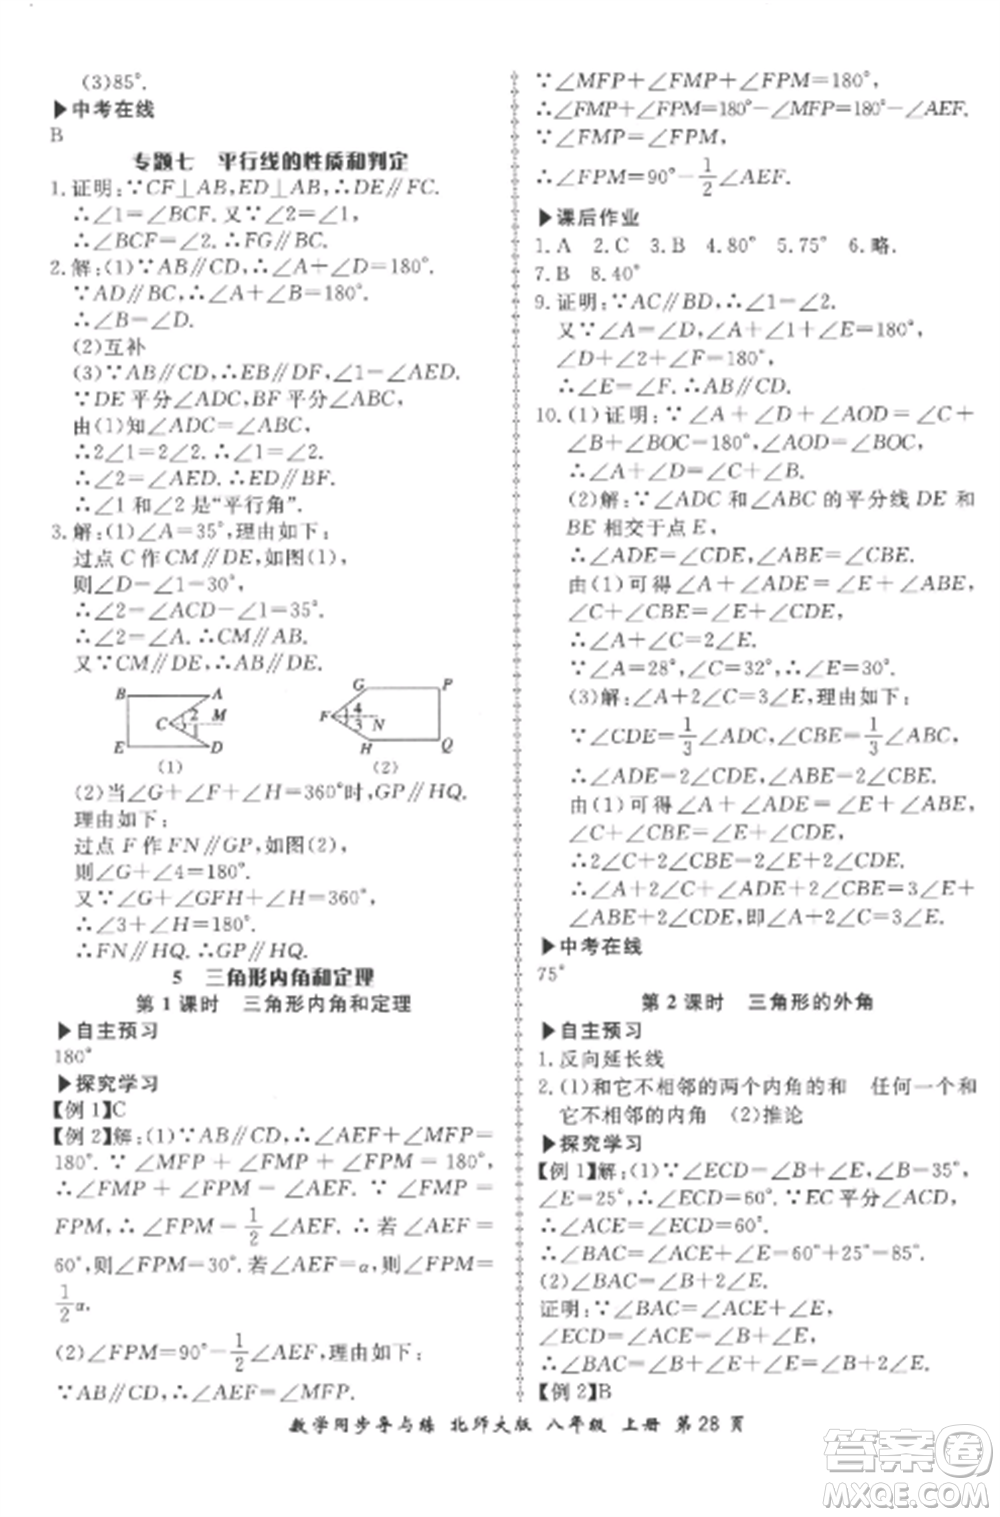 (3)85°.
▶中考在线
B
专题七 平行线的性质和判定
1.证明:∵CF⊥AB,ED⊥AB,∴DE∥FC.
∴∠1=∠BCF.又∵∠2=∠1,
∴∠BCF=∠2.∴FG∥BC.
2.解:(1)∵AB∥CD,∴∠A+∠D=180°.
∵AD∥BC,∴∠A+∠B=180°.
∴∠B=∠D.
(2)互补
(3)∵AB∥CD,∴∠1=∠AED.
∵DE平分∠ADC,BF平分∠ABC,
由(1)知∠ADC=∠ABC,
∴2∠1=2∠2.∴∠1=∠2.
∴∠2=∠AED.∴DE∥BF.
∴∠1和∠2是“平行角”.
3.解:(1)∠A=35°,理由如下:
过点C作CM∥DE,如图(1),
则∠D=∠1=30°,
∴∠2=∠ACD-∠1=35°.
∴∠2=∠A.∴CM∥AB.
又∵CM∥DE,∴AB∥DE.
B A C 3 2 1 M E D
(1)
G P F 4 3 N H Q
(2)
(2)当∠G+∠F+∠H=360°时,GP∥HQ.
理由如下:
过点F作FN∥GP,如图(2),
则∠G+∠4=180°.
又∵∠G+∠GFH+∠H=360°,
∴∠3+∠H=180°.
∴FN∥HQ.∴GP∥HQ.
5 三角形内角和定理
第1课时 三角形内角和定理
▶自主预习
180°
▶探究学习
【例1】C
【例2】解:(1)∵AB∥CD,∴∠AEF+∠MFP=
180°.∵∠MFP+∠FMP+∠FPM=180°,
∴∠FMP+∠FPM=∠AEF.∵∠FMP=
∠FPM,∴∠FPM=1/2∠AEF.∴若∠AEF=
60°,则∠FPM=30°.若∠AEF=α,则∠FPM=
1/2α.
(2)∠FPM=90°-1/2∠AEF,理由如下:
∵AB∥CD,∴∠AEF=∠MFP.
∵∠MFP+∠FMP+∠FPM=180°,
∴∠FMP+∠FPM=180°-∠MFP=180°-∠AEF.
∵∠FMP=∠FPM,
∴∠FPM=90°-1/2∠AEF.
▶课后作业
1.A 2.C 3.B 4.80° 5.75° 6.略.
7.B 8.40°
9.证明:∵AC∥BD,∴∠1=∠2.
又∵∠A=∠D,∠A+∠1+∠E=180°,
∠D+∠2+∠F=180°,
∴∠E=∠F.∴AE∥DF.
10.(1)证明:∵∠A+∠D+∠AOD=∠C+
∠B+∠BOC=180°,∠AOD=∠BOC,
∴∠A+∠D=∠C+∠B.
(2)解:∵∠ADC和∠ABC的平分线DE和
BE相交于点E,
∴∠ADE=∠CDE,∠CBE=∠ABE.
由(1)可得∠A+∠ADE=∠E+∠ABE,
∠C+∠CBE=∠E+∠CDE,
∴∠A+∠C=2∠E.
∵∠A=28°,∠C=32°,∴∠E=30°.
(3)解:∠A+2∠C=3∠E,理由如下:
∵∠CDE=1/3∠ADC,∠CBE=1/3∠ABC,
∴∠ADE=2∠CDE,∠ABE=2∠CBE.
由(1)可得∠A+∠ADE=∠E+∠ABE,
∠C+∠CBE=∠E+∠CDE,
∴2∠C+2∠CBE=2∠E+2∠CDE.
∴∠A+2∠C+∠ADE+2∠CBE=3∠E+
∠ABE+2∠CDE,即∠A+2∠C=3∠E.
▶中考在线
75°
第2课时 三角形的外角
▶自主预习
1.反向延长线
2.(1)和它不相邻的两个内角的和 任何一个和
它不相邻的内角 (2)推论
▶探究学习
【例1】解:(1)∵∠ECD=∠B+∠E,∠B=35°,
∠E=25°,∴∠ECD=60°.∵EC平分∠ACD,
∴∠ACE=∠ECD=60°.
∴∠BAC=∠ACE+∠E=60°+25°=85°.
(2)∠BAC=∠B+2∠E.
证明:∵∠BAC=∠ACE+∠E,
∠ECD=∠B+∠E,∠ACE=∠ECD,
∴∠BAC=∠B+∠E+∠E=∠B+2∠E.
【例2】B
数学同步导与练 北师大版 八年级 上册 第28页
答案圈
MXQE.COM